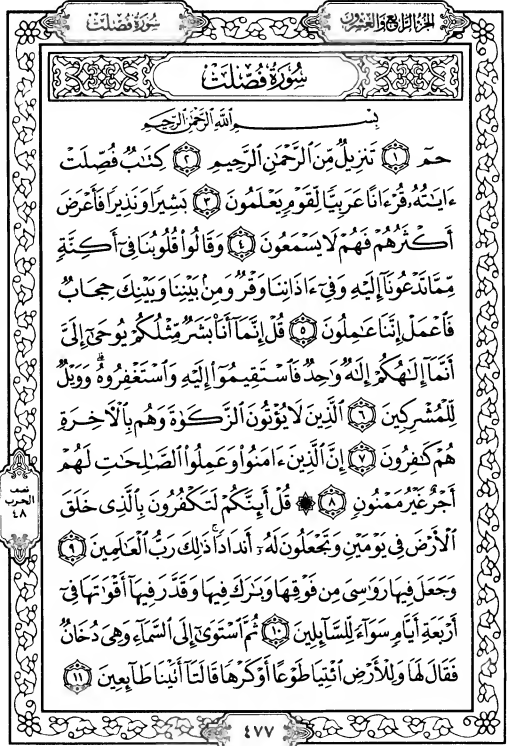 سُورَةُ فُصِّلَتْ
الجُزْءُ الرَّابِعُ وَالعِشْرُونَ
سُورَةُ فُصِّلَتْ
بِسْمِ اللَّهِ الرَّحْمَٰنِ الرَّحِيمِ
حمٓ ۝١ تَنزِيلٌ مِّنَ الرَّحْمَٰنِ الرَّحِيمِ ۝٢ كِتَٰبٌ فُصِّلَتْ
ءَايَٰتُهُۥ قُرْءَانًا عَرَبِيًّا لِّقَوْمٍ يَعْلَمُونَ ۝٣ بَشِيرًا وَنَذِيرًا فَأَعْرَضَ
أَكْثَرُهُمْ فَهُمْ لَا يَسْمَعُونَ ۝٤ وَقَالُوا۟ قُلُوبُنَا فِىٓ أَكِنَّةٍ
مِّمَّا تَدْعُونَآ إِلَيْهِ وَفِىٓ ءَاذَانِنَا وَقْرٌ وَمِنۢ بَيْنِنَا وَبَيْنِكَ حِجَابٌ
فَٱعْمَلْ إِنَّنَا عَٰمِلُونَ ۝٥ قُلْ إِنَّمَآ أَنَا۠ بَشَرٌ مِّثْلُكُمْ يُوحَىٰٓ إِلَىَّ
أَنَّمَآ إِلَٰهُكُمْ إِلَٰهٌ وَٰحِدٌ فَٱسْتَقِيمُوٓا۟ إِلَيْهِ وَٱسْتَغْفِرُوهُ ۗ وَوَيْلٌ
لِّلْمُشْرِكِينَ ۝٦ ٱلَّذِينَ لَا يُؤْتُونَ ٱلزَّكَوٰةَ وَهُم بِٱلْءَاخِرَةِ
هُمْ كَٰفِرُونَ ۝٧ إِنَّ ٱلَّذِينَ ءَامَنُوا۟ وَعَمِلُوا۟ ٱلصَّٰلِحَٰتِ لَهُمْ
أَجْرٌ غَيْرُ مَمْنُونٍ ۝٨ ۞ قُلْ أَئِنَّكُمْ لَتَكْفُرُونَ بِٱلَّذِى خَلَقَ
ٱلْأَرْضَ فِى يَوْمَيْنِ وَتَجْعَلُونَ لَهُۥٓ أَندَادًا ۚ ذَٰلِكَ رَبُّ ٱلْعَٰلَمِينَ ۝٩
وَجَعَلَ فِيهَا رَوَٰسِىَ مِن فَوْقِهَا وَبَٰرَكَ فِيهَا وَقَدَّرَ فِيهَآ أَقْوَٰتَهَا فِىٓ
أَرْبَعَةِ أَيَّامٍ سَوَآءً لِّلسَّآئِلِينَ ۝١٠ ثُمَّ ٱسْتَوَىٰٓ إِلَى ٱلسَّمَآءِ وَهِىَ دُخَانٌ
فَقَالَ لَهَا وَلِلْأَرْضِ ٱئْتِيَا طَوْعًا أَوْ كَرْهًا قَالَتَآ أَتَيْنَا طَآئِعِينَ ۝١١
نصف
الحزب
٤٨
٤٧٧